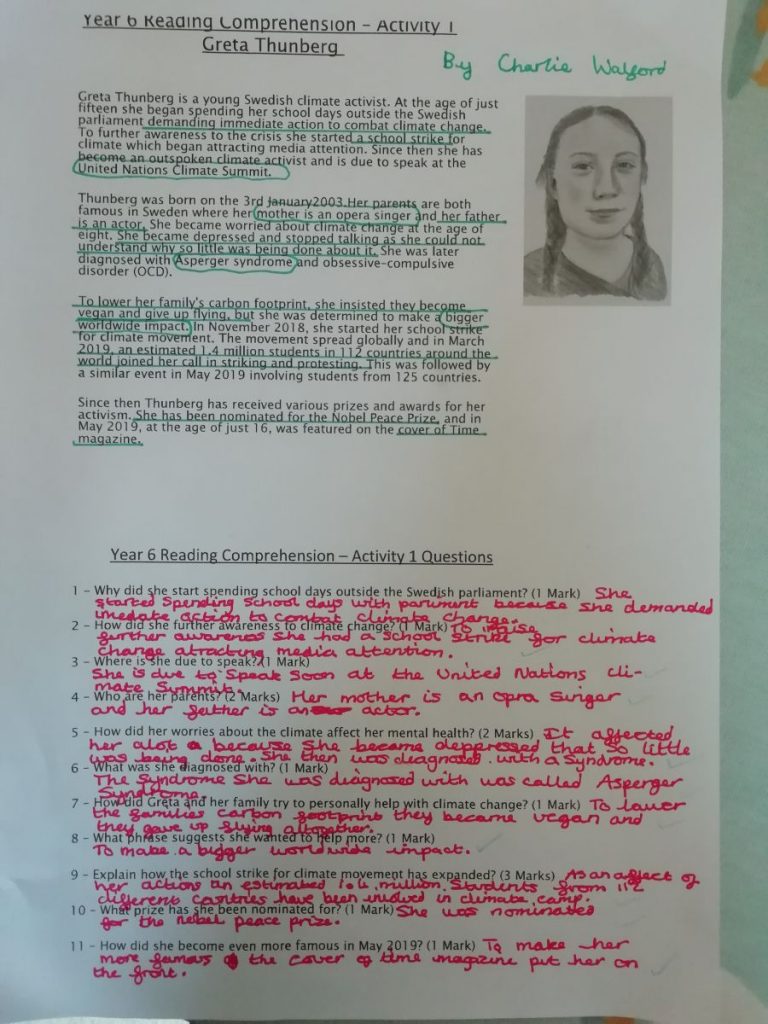 Year 6 Reading Comprehension – Activity 1
Greta Thunberg
By Charlie Walford
Greta Thunberg is a young Swedish climate activist. At the age of just
fifteen she began spending her school days outside the Swedish
parliament demanding immediate action to combat climate change.
To further awareness to the crisis she started a school strike for
climate which began attracting media attention. Since then she has
become an outspoken climate activist and is due to speak at the
United Nations Climate Summit.
Thunberg was born on the 3rd January2003.Her parents are both
famous in Sweden where her mother is an opera singer and her father
is an actor. She became worried about climate change at the age of
eight. She became depressed and stopped talking as she could not
understand why so little was being done about it. She was later
diagnosed with Asperger syndrome and obsessive-compulsive
disorder (OCD).
To lower her family's carbon footprint, she insisted they become
vegan and give up flying, but she was determined to make a bigger
worldwide impact. In November 2018, she started her school strike
for climate movement. The movement spread globally and in March
2019, an estimated 1.4 million students in 112 countries around the
world joined her call in striking and protesting. This was followed by
a similar event in May 2019 involving students from 125 countries.
Since then Thunberg has received various prizes and awards for her
activism. She has been nominated for the Nobel Peace Prize, and in
May 2019, at the age of just 16, was featured on the cover of Time
magazine.
Year 6 Reading Comprehension – Activity 1 Questions
1 – Why did she start spending school days outside the Swedish parliament? (1 Mark) She
started spending school days with parliment because she demanded
imediate action to combat climate change.
2 – How did she further awareness to climate change? (1 Mark) To raise
further awareness she had a school strike for climate
change atracting media attention.
3 – Where is she due to speak? (1 Mark)
She is due to speak soon at the United Nations cli-
mate Summit.
4 – Who are her parents? (2 Marks) Her mother is an opra singer
and her father is an actor.
5 – How did her worries about the climate affect her mental health? (2 Marks) It affected
her alot because she became deppressed that so little
was being done. She then was deagnosed with a syndrome.
6 – What was she diagnosed with? (1 Mark)
The syndrome she was diagnosed with was called Asperger
Syndrome.
7 – How did Greta and her family try to personally help with climate change? (1 Mark) To lower
the families carbon footprint they became vegan and
they gave up flying altogether.
8 – What phrase suggests she wanted to help more? (1 Mark)
To make a bigger worldwide impact.
9 – Explain how the school strike for climate movement has expanded? (3 Marks) As an affect of
her actions an estimated 1.4 million students from 112
different countries have been involved in climate camp.
10 – What prize has she been nominated for? (1 Mark) She was nominated
for the nobel peace prize.
11 – How did she become even more famous in May 2019? (1 Mark) To make her
more famous the cover of time magazine put her on
the front.